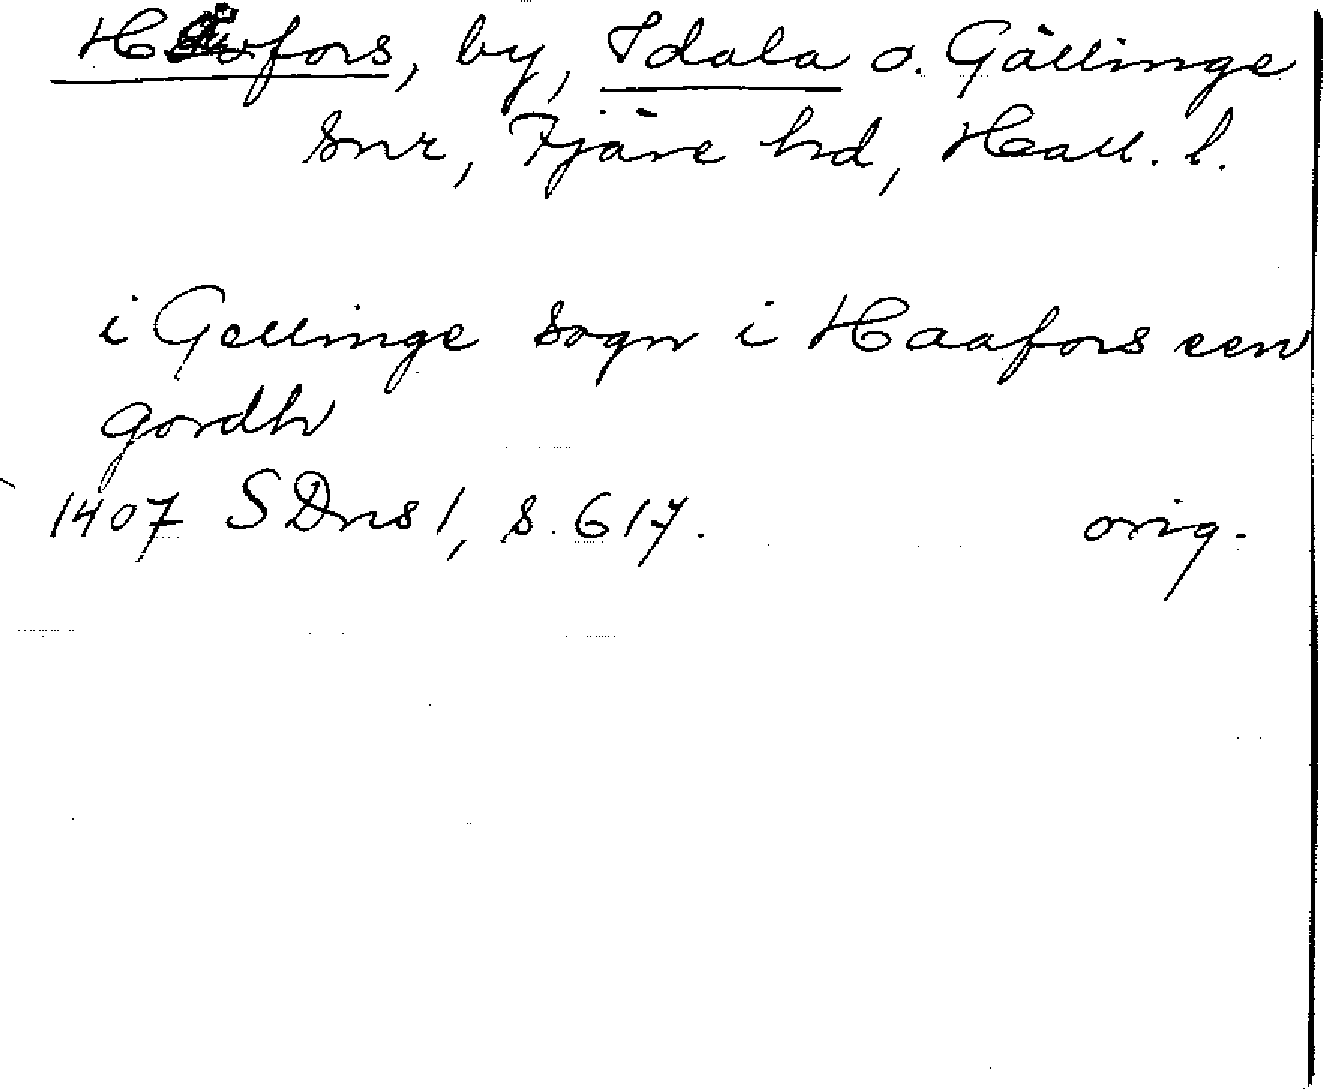 by, Idala o. Gällinge
snr, Fjäre hd, Hall. l.
i Gellinge sogn i Haafors een
gordh
1407 SDns 1, s. 617. orig.